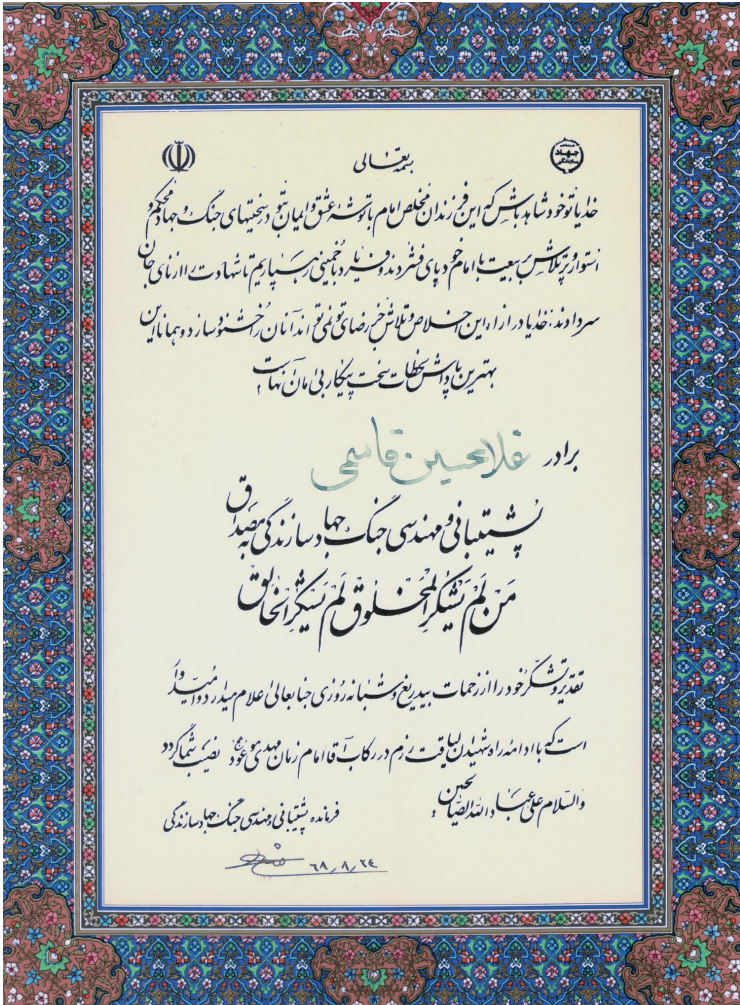 بسمه تعالی
جهاد
خدایا تو خود شاهد باش که این فرزندان مخلص امام با توشه عشق و ایمان بتو در سختیهای جنگ و جهاد محکم و
استوار و پرتلاش بر بیعت با امام خود پای فشردند و فریاد با خمینی ره بسپاریم تا شهادت را از نای جان
سر دادند. خدایا در ازاء این اخلاص و تلاش جز رضای تو نمی تواند آنان را خشنود سازد و همانا این
بهترین پاداش لحظات سخت پیکار بی امان آنهاست
برادر غلامحسین قاسمی
پشتیبانی و مهندسی جنگ جهاد سازندگی به مصداق
مَن لَم یَشکُرِ المَخلوق لَم یَشکُرِ الخالِق
تقدیر و تشکر خود را از زحمات بیدریغ و شبانه روزی جنابعالی اعلام میدارد و امیدوار
است که با ادامه راه شهیدان لیاقت رزم در رکاب آقا امام زمان مهدی موعود (عج) نصیب شما گردد
والسلام علی عباد الله الصالحین
فرمانده پشتیبانی و مهندسی جنگ جهاد سازندگی
۶۸/۸/۲۴